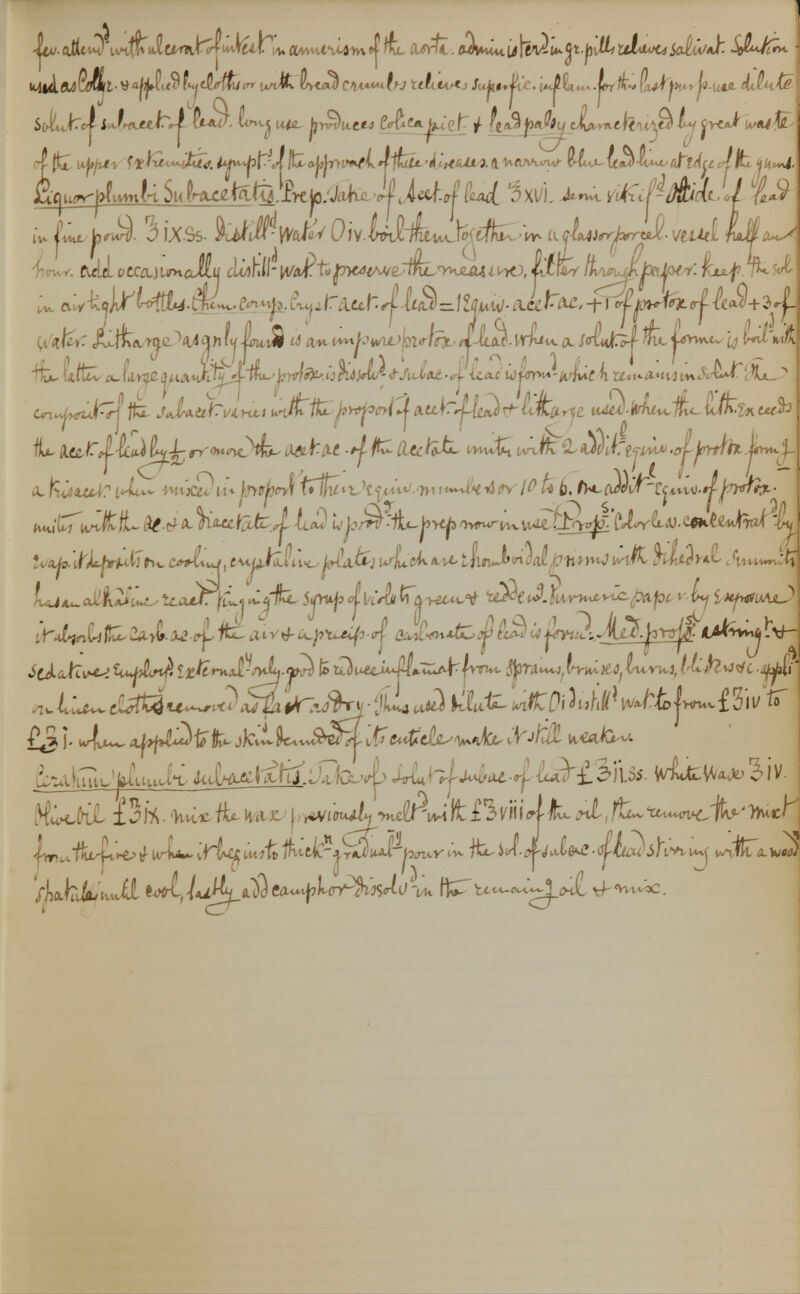 fev. attend with ulcerat. of intest. in anneurism of the aorta. administer'd in gr. pills relieves salivat. Solution
used as Colly. & applied by cloths or with bread crumbs relieves superfic. inflam. for this last purp. use dilute
Solut. of subacet. of lead. long use produces Colica pict. & lead palsy characterized by great waste
of the upper extremities. sympt. of the approach of these diseases. a narrow blue lead line at edge of the gums.
Liquor plumbi Subacetatis. Prep. Take of Acet. of lead ℥xvi. semi vitrif. Oxide of lead
in fine powd. ℥ixss. Distill'd Water Oiv. boil them together in a glass or porcel. vessel half an
hour. add occasionally distill'd wat. to preserve the measure, filter through paper. keep the sol
in airtight bottles. Chem. Comp. Cryst. acet. of lead = 1 Equiv. acet. ac. + 1 of protox. of lead + 3 of
water. Litharge as gnly found is an impure protox. of lead. when a solut. of the former is boil'd with
the latter a large quantity of the protox. is dissolv'd & subac. of lead is form'd which remains in solut. The
composit. of the subacet. varies with the proport. of acet. of lead & litharge used. when the lith. exceeds
the acet. of lead by ½ or more the acet. ac. of the acetate unites with 2 addit. equiv. of protox. forming
a trisacet. when mixed in proport. to their equiv. numbers or 10 to 6. one addit. equiv. of protox.
unites with the ac. & a diacetate of lead is prod. the prep. now in use. Prop's. Colorless. concentrat'd by
evap. it deposits on cooling, crystaline plates which are rhomboidal prisms with dihedral summits
has an alkaline react. tinging the syrup of violets green & redden'd turmeric paper by exposure
it absorbs the carb. ac. of the air & a precip. of carbonate of lead is form'd. Med. prop's. astring't &
sedative. Employ'd external'y only. good to reduce inflamat. from sprains, bruises, burns, blisters &c. appli'd
on linen cloths removed as fast as dry. Thus used dilute with Oi distill'd wat. to from f℥iv to
f℥j. when applied to the skin denuded of its cuticle make it still weaker.
Ceratum plumbi subacetatis. Take of Solut. of subac. of lead f℥iiss. White Wax ℥iv.
Olive Oil f℥ix. mix the wax previously melt'd with f℥viii of the oil, then remove the mixt
from the fire & when it begins to thick'n gradual'y pour in the sol. of subac. of lead stirring with a wood
spatula until cool, lastly add camphor dissolv'd in the remaining oil & mix.